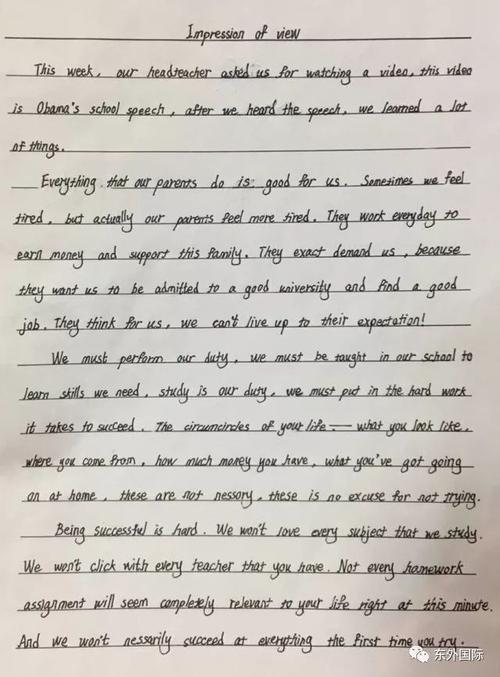 Impression of view
This week, our headteacher asked us for watching a video, this video
is Obama's school speech, after we heard the speech, we learned a lot
of things.
Everything that our parents do is good for us. Sometimes we feel
tired, but actually our parents feel more tired. They work everyday to
earn money and support this family. They exact demand us, because
they want us to be admitted to a good university and find a good
job. They think for us, we can't live up to their expectation!
We must perform our duty, we must be taught in our school to
learn skills we need, study is our duty, we must put in the hard work
it takes to succeed. The circumcircles of your life — what you look like,
where you come from, how much money you have, what you've got going
on at home, these are not nessory, these is no excuse for not trying.
Being successful is hard. We won't love every subject that we study.
We won't click with every teacher that you have. Not every homework
assignment will seem completely relevant to your life right at this minute.
And we won't nessarily succeed at everything the first time you try.
东外国际